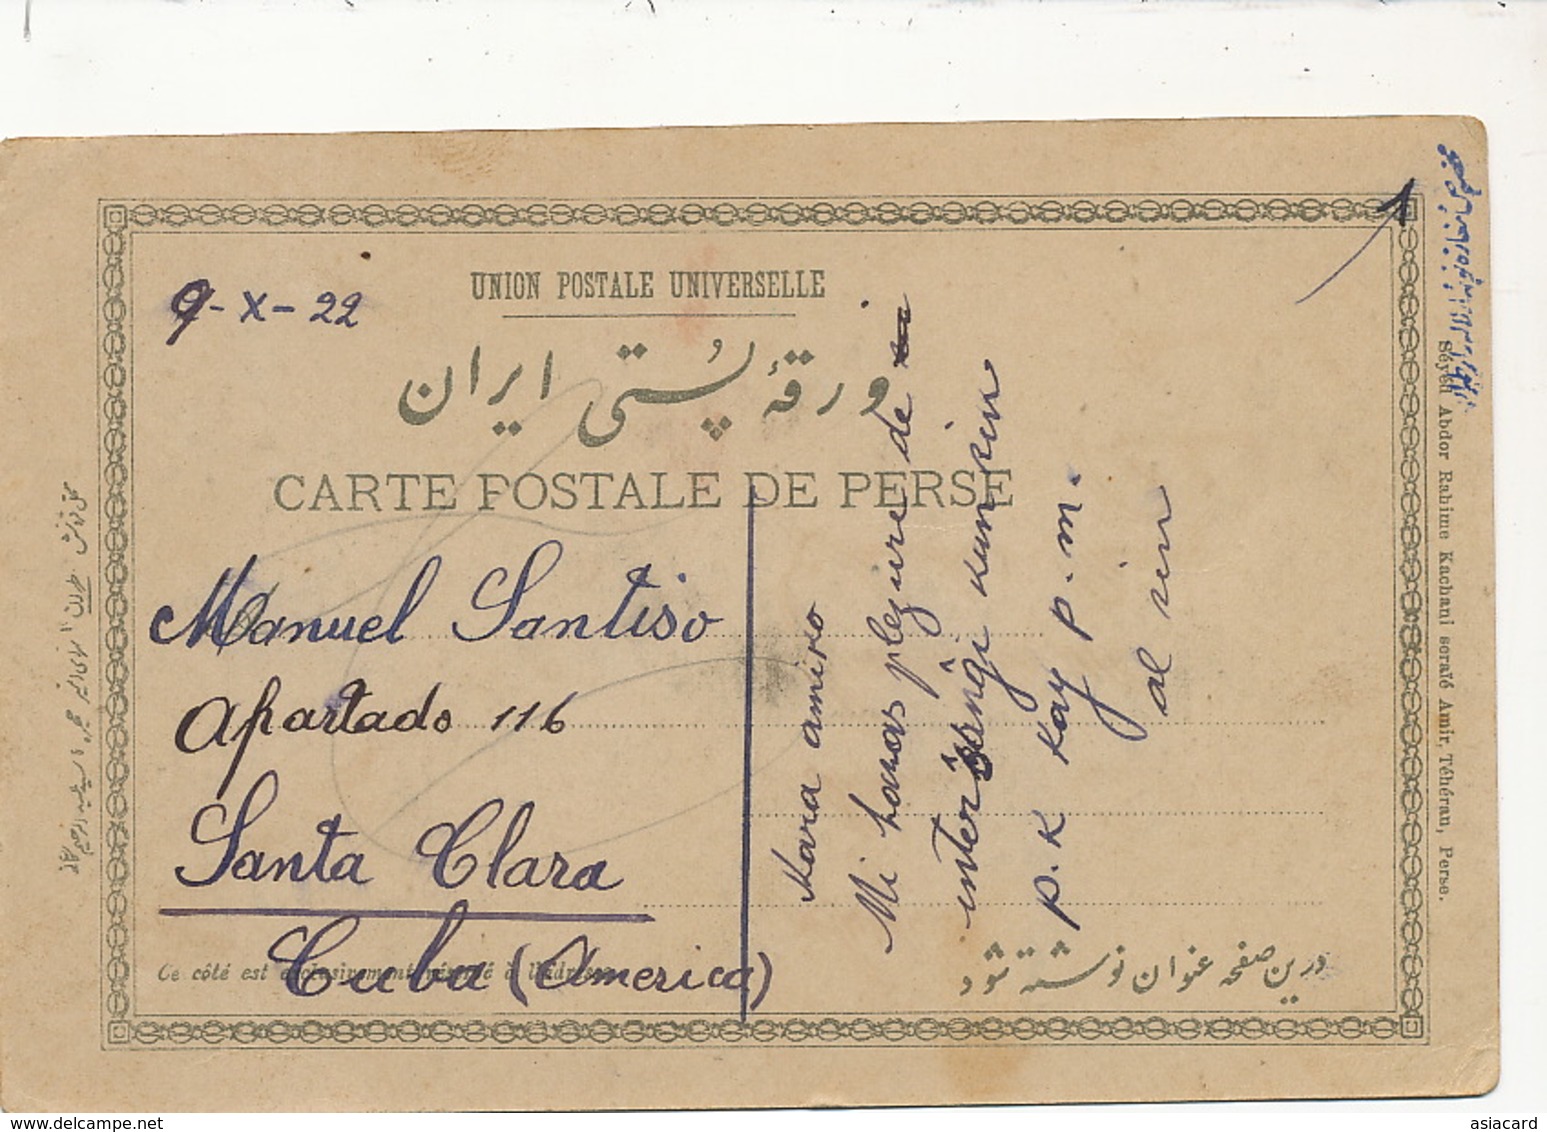 9-X-22
UNION POSTALE UNIVERSELLE
ورقهٔ پُستی ایران
CARTE POSTALE DE PERSE
Manuel Santiso
Apartado 116
Santa Clara
Cuba (America)
Ce côté est exclusivement réservé à l'adresse
درین صفحه عنوان نوشته شود
Kara amiko
Mi havas plezure de
interŝanĝi kun vin
p.k kaj p.m.
al vin
1
Séyed Abdor Rahime Kachani seraïé Amir, Téhéran, Perse.
delcampe.net
asiacard